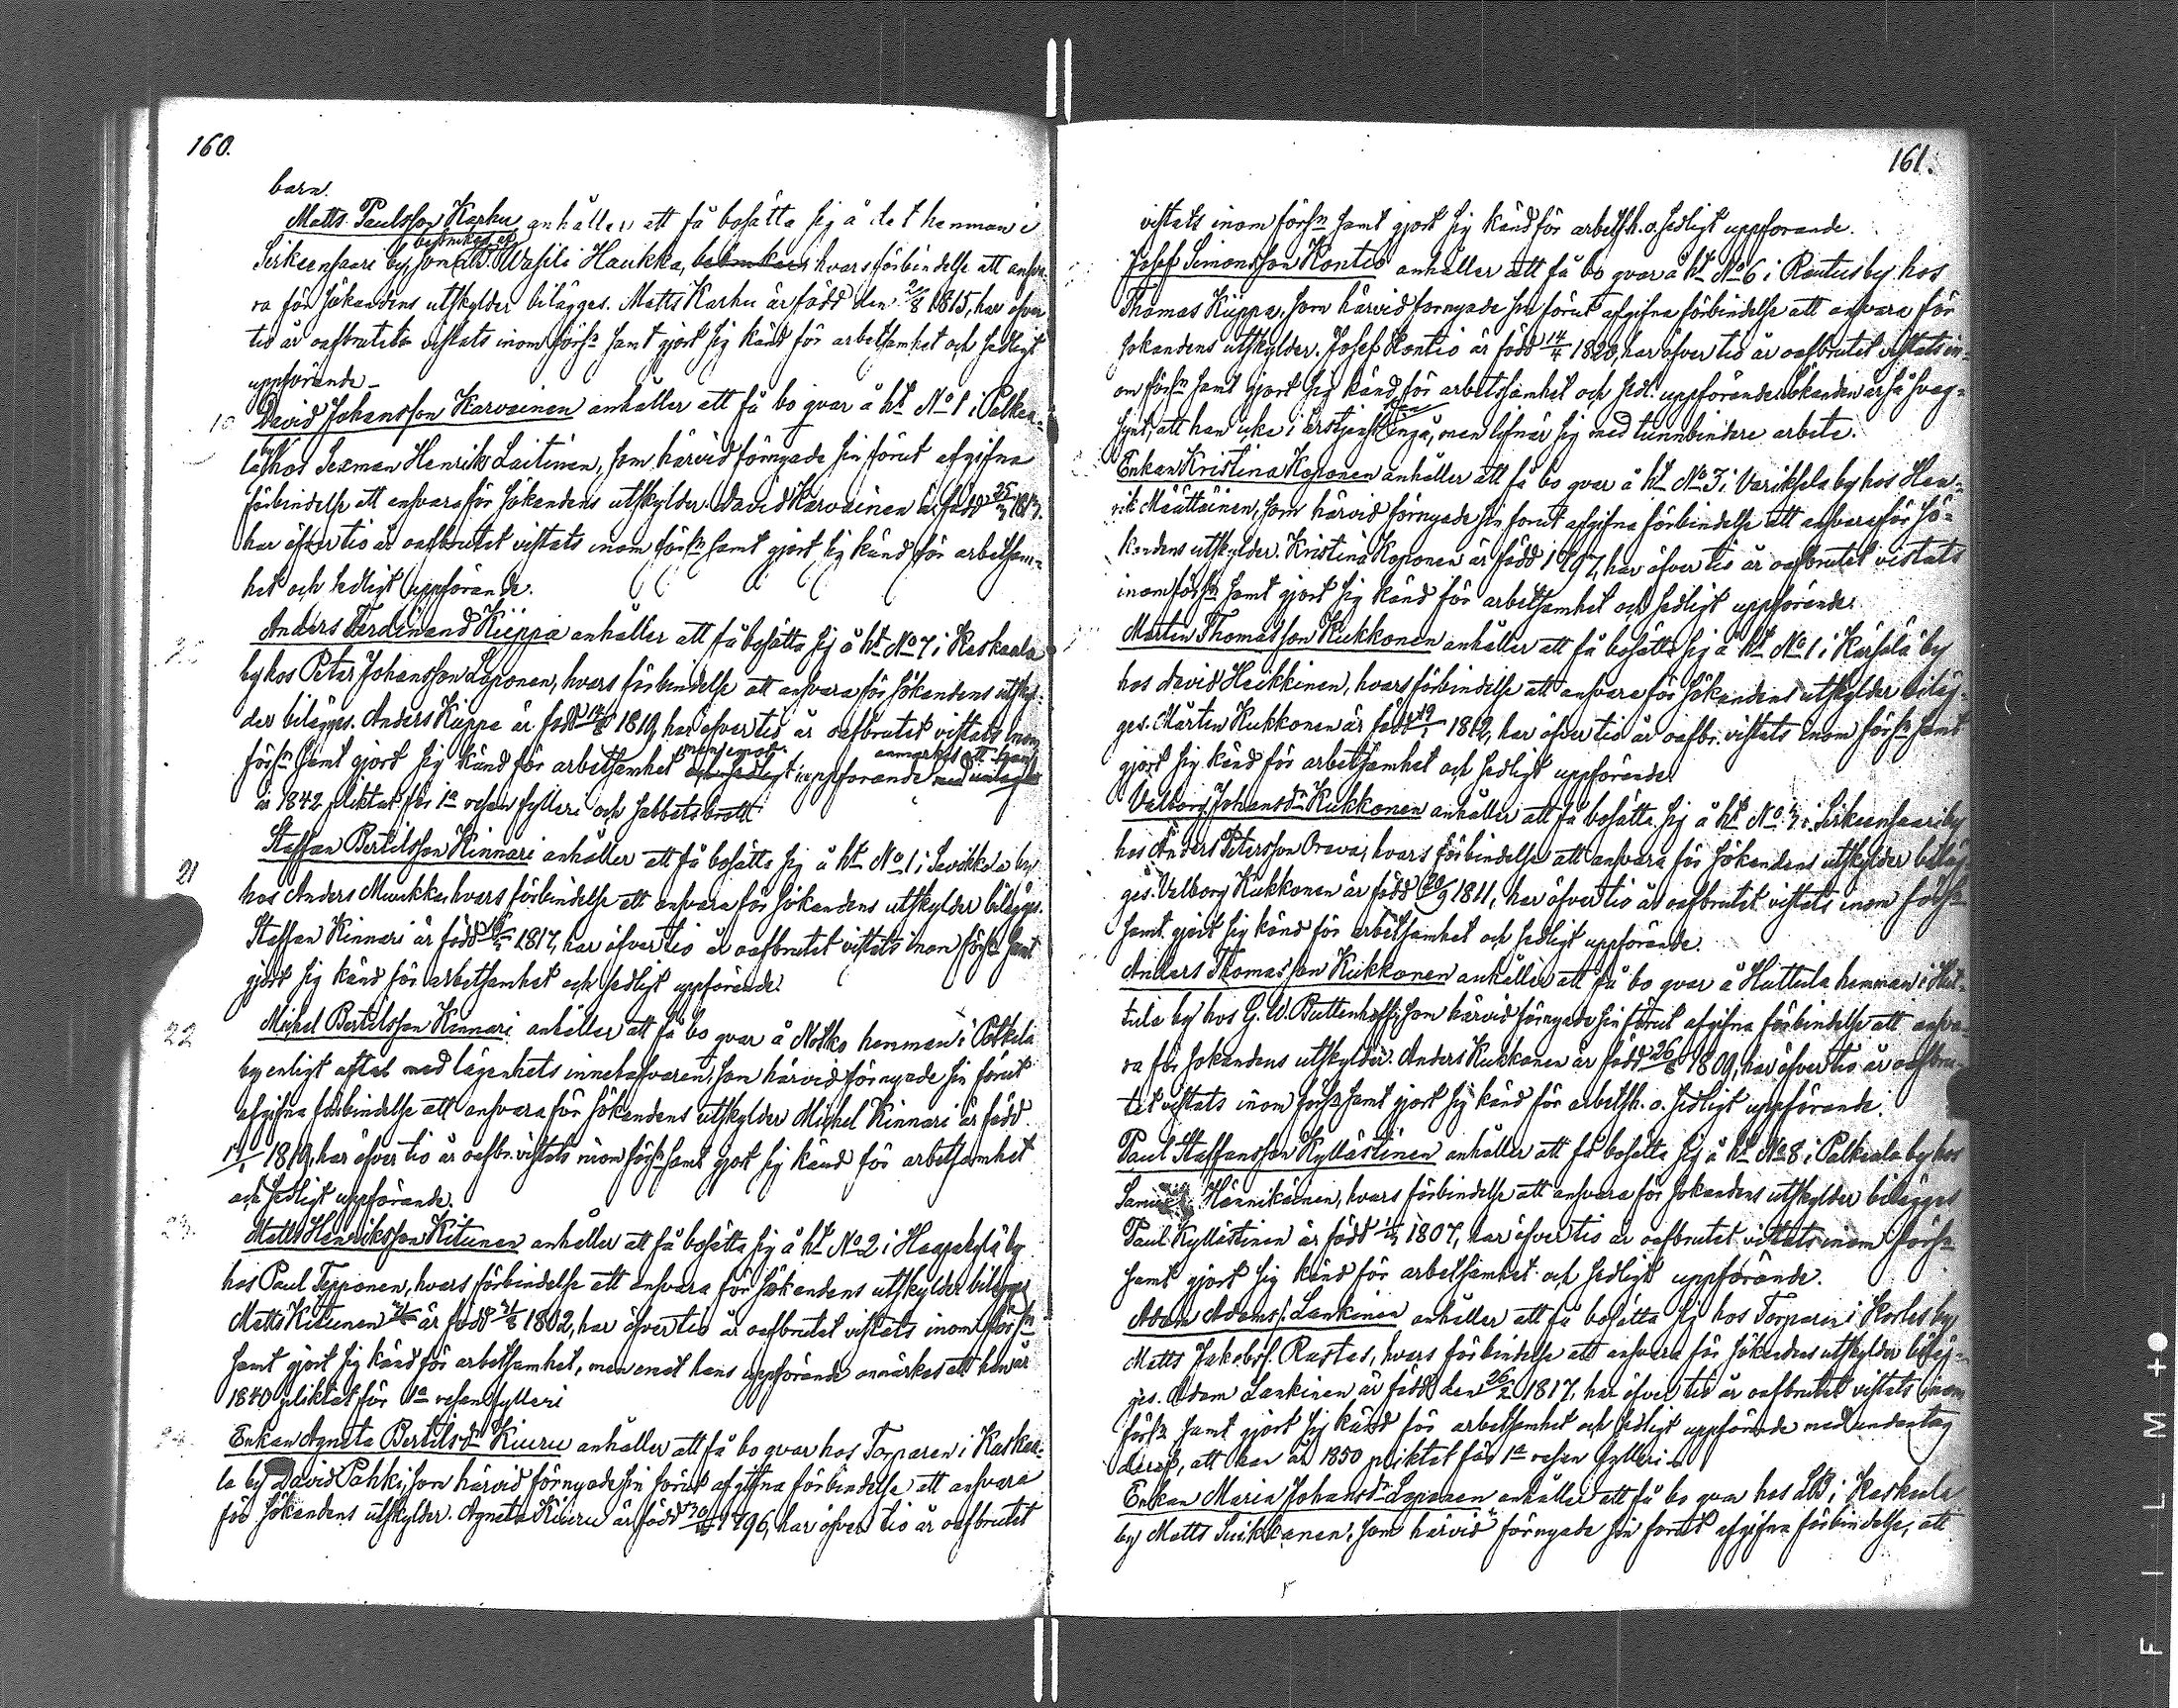 160.
barn.
Matts Paulsson Karhu anhåller att få bosätta sig å det hemman i
Sirkeensaari by, som brukas af Wasili Haukka, hvars förbindelse att ansva-
ra för sökandens utskylder bilägges. Matts Karhu är född den 2/8 1815, har öfver
tio år oafbrutet vistats inom förs:n samt gjort sig känd för arbetsamhet och sedligt
uppförande.
David Johansson Karvainen anhåller att få bo qvar å ht No 1 i Palkea-
la by hos Sexman Henrik Laitinen, som härvid förnyade sin förut afgifna
förbindelse att ansvara för sökandens utskylder. David Karvainen är född
har öfver tio år oafbrutet vistats inom förs:n samt gjort sig känd för arbetsam-
het och sedligt uppförande.
Anders Ferdinand Küppa anhåller att få bosätta sig å ht No 7 i Kaskaala
by hos Peter Johansson Loponen, hvars förbindelse att ansvara för sökandens utskyl-
der bilägges. Anders Küppa är född 1819, har öfver tio år oafbrutet vistats inom
förs:n samt gjort sig känd för arbetsamhet men emot uppförande anmärkes att han
år 1842 pliktat för 1a resan fylleri och sabbatsbrott
21
Staffan Bertilsson Kinnari anhåller att få bosätta sig å ht No 1 i Savikkola by
hos Anders Muukka, hvars förbindelse att ansvara för sökandens utskylder bilägges.
Staffan Kinnari är född 1817, har öfver tio år oafbrutet vistats inom förs:n samt
gjort sig känd för arbetsamhet och sedligt uppförande.
22
Michel Bertilsson Kinnari anhåller att få bo qvar å Notko hemman i Potkela
by enligt aftal med lägenhets innehafvaren, som härvid förnyade sin förut
afgifna förbindelse att ansvara för sökandens utskylder. Michel Kinnari är född
1819, har öfver tio år oafbr. vistats inom förs:n samt gjort sig känd för arbetsamhet
och sedligt uppförande.
23.
Matts Henriksson Kitunen anhåller att få bosätta sig å ht No 2 i Haapakylä by
hos Paul Tepponen, hvars förbindelse att ansvara för sökandens utskylder bilägges
Matts Kitunen är född 1802, har öfver tio år oafbrutet vistats inom förs:n
samt gjort sig känd för arbetsamhet, men emot hans uppförande anmärkes att han år
1840 pliktat för 1a resan fylleri
24.
Enkan Agneta Bertilsd:r Kiuru anhåller att få bo qvar hos Torparen i Kaskaa-
la by David Pahki, som härvid förnyade sin förut afgifna förbindelse att ansvara
för sökandens utskylder. Agneta Kiuru är född 1796, har öfver tio år oafbrutet
161.
vistats inom förs:n samt gjort sig känd för arbetsh. o. sedligt uppförande.
Josef Simonsson Kontio anhåller att få bo qvar å ht No 6 i Rautus by hos
Thomas Küppa, som härvid förnyade sin förut afgifna förbindelse att ansvara för
sökandens utskylder. Josef Kontio är född 14/4 1820, har öfver tio år oafbrutet vistats in-
om förs:n samt gjort sig känd för arbetsamhet och sedl. uppförande. Sökanden är så svag-
synt, att han icke i årstjenst kan ingå, men lifnär sig med tunnbindare arbete.
Enkan Kristina Koponen anhåller att få bo qvar å ht No 3 i Variksela by hos Hen-
rik Määttäinen, som härvid förnyade sin förut afgifna förbindelse att ansvara för sö-
kandens utskylder. Kristina Koponen är född 1797, har öfver tio år oafbrutet vistats
inom förs:n samt gjort sig känd för arbetsamhet och sedligt uppförande.
Mårten Thomasson Kukkonen anhåller att få bosätta sig å ht No 1 i Kärsälä by
hos David Heikkinen, hvars förbindelse att ansvara för sökandens utskylder biläg-
ges. Mårten Kukkonen är född 1812, har öfver tio år oafbr. vistats inom förs:n samt
gjort sig känd för arbetsamhet och sedligt uppförande.
Valborg Johansd:r Kukkonen anhåller att få bosätta sig å ht No 3 i Sirkeensaari by
hos Anders Petersson Orava, hvars förbindelse att ansvara för sökandens utskylder biläg
ges. Valborg Kukkonen är född 20/9 1811, har öfver tio år oafbrutet vistats inom förs:n
samt gjort sig känd för arbetsamhet och sedligt uppförande.
Anders Thomasson Kukkonen anhåller att få bo qvar å Huttula hemman i Hut-
tula by hos G. W. Puttenhoff, som härvid förnyade sin förut afgifna förbindelse att ansva-
ra för sökandens utskylder. Anders Kukkonen är född 1809, har öfver tio år oafbru-
tet vistats inom förs:n samt gjort sig känd för arbetsh. o. sedligt uppförande.
Paul Staffansson Kyllästinen anhåller att få bosätta sig å ht No 8 i Palkeala by hos
Samuel Hännikäinen, hvars förbindelse att ansvara för sökandens utskylder bilägges
Paul Kyllästinen är född 1807, har öfver tio år oafbrutet vistats inom förs:n
samt gjort sig känd för arbetsamhet och sedligt uppförande.
Adam Adamss. Lankinen anhåller att få bosätta sig hos Torparen i Korles by
Matts Jakobss. Rastas, hvars förbindelse att ansvara för sökandens utskylder biläg-
ges. Adam Lankinen är född den 26/2 1817, har öfver tio år oafbrutet vistats inom
förs:n samt gjort sig känd för arbetsamhet och sedligt uppförande med undantag
deraf, att han år 1850 pliktat för 1a resan fylleri.
Enkan Maria Johansd:r Loponen anhåller att få bo qvar hos LB i Kaskaala
by Matts Suikkanen, som härvid förnyade sin förut afgifna förbindelse, att
FILM